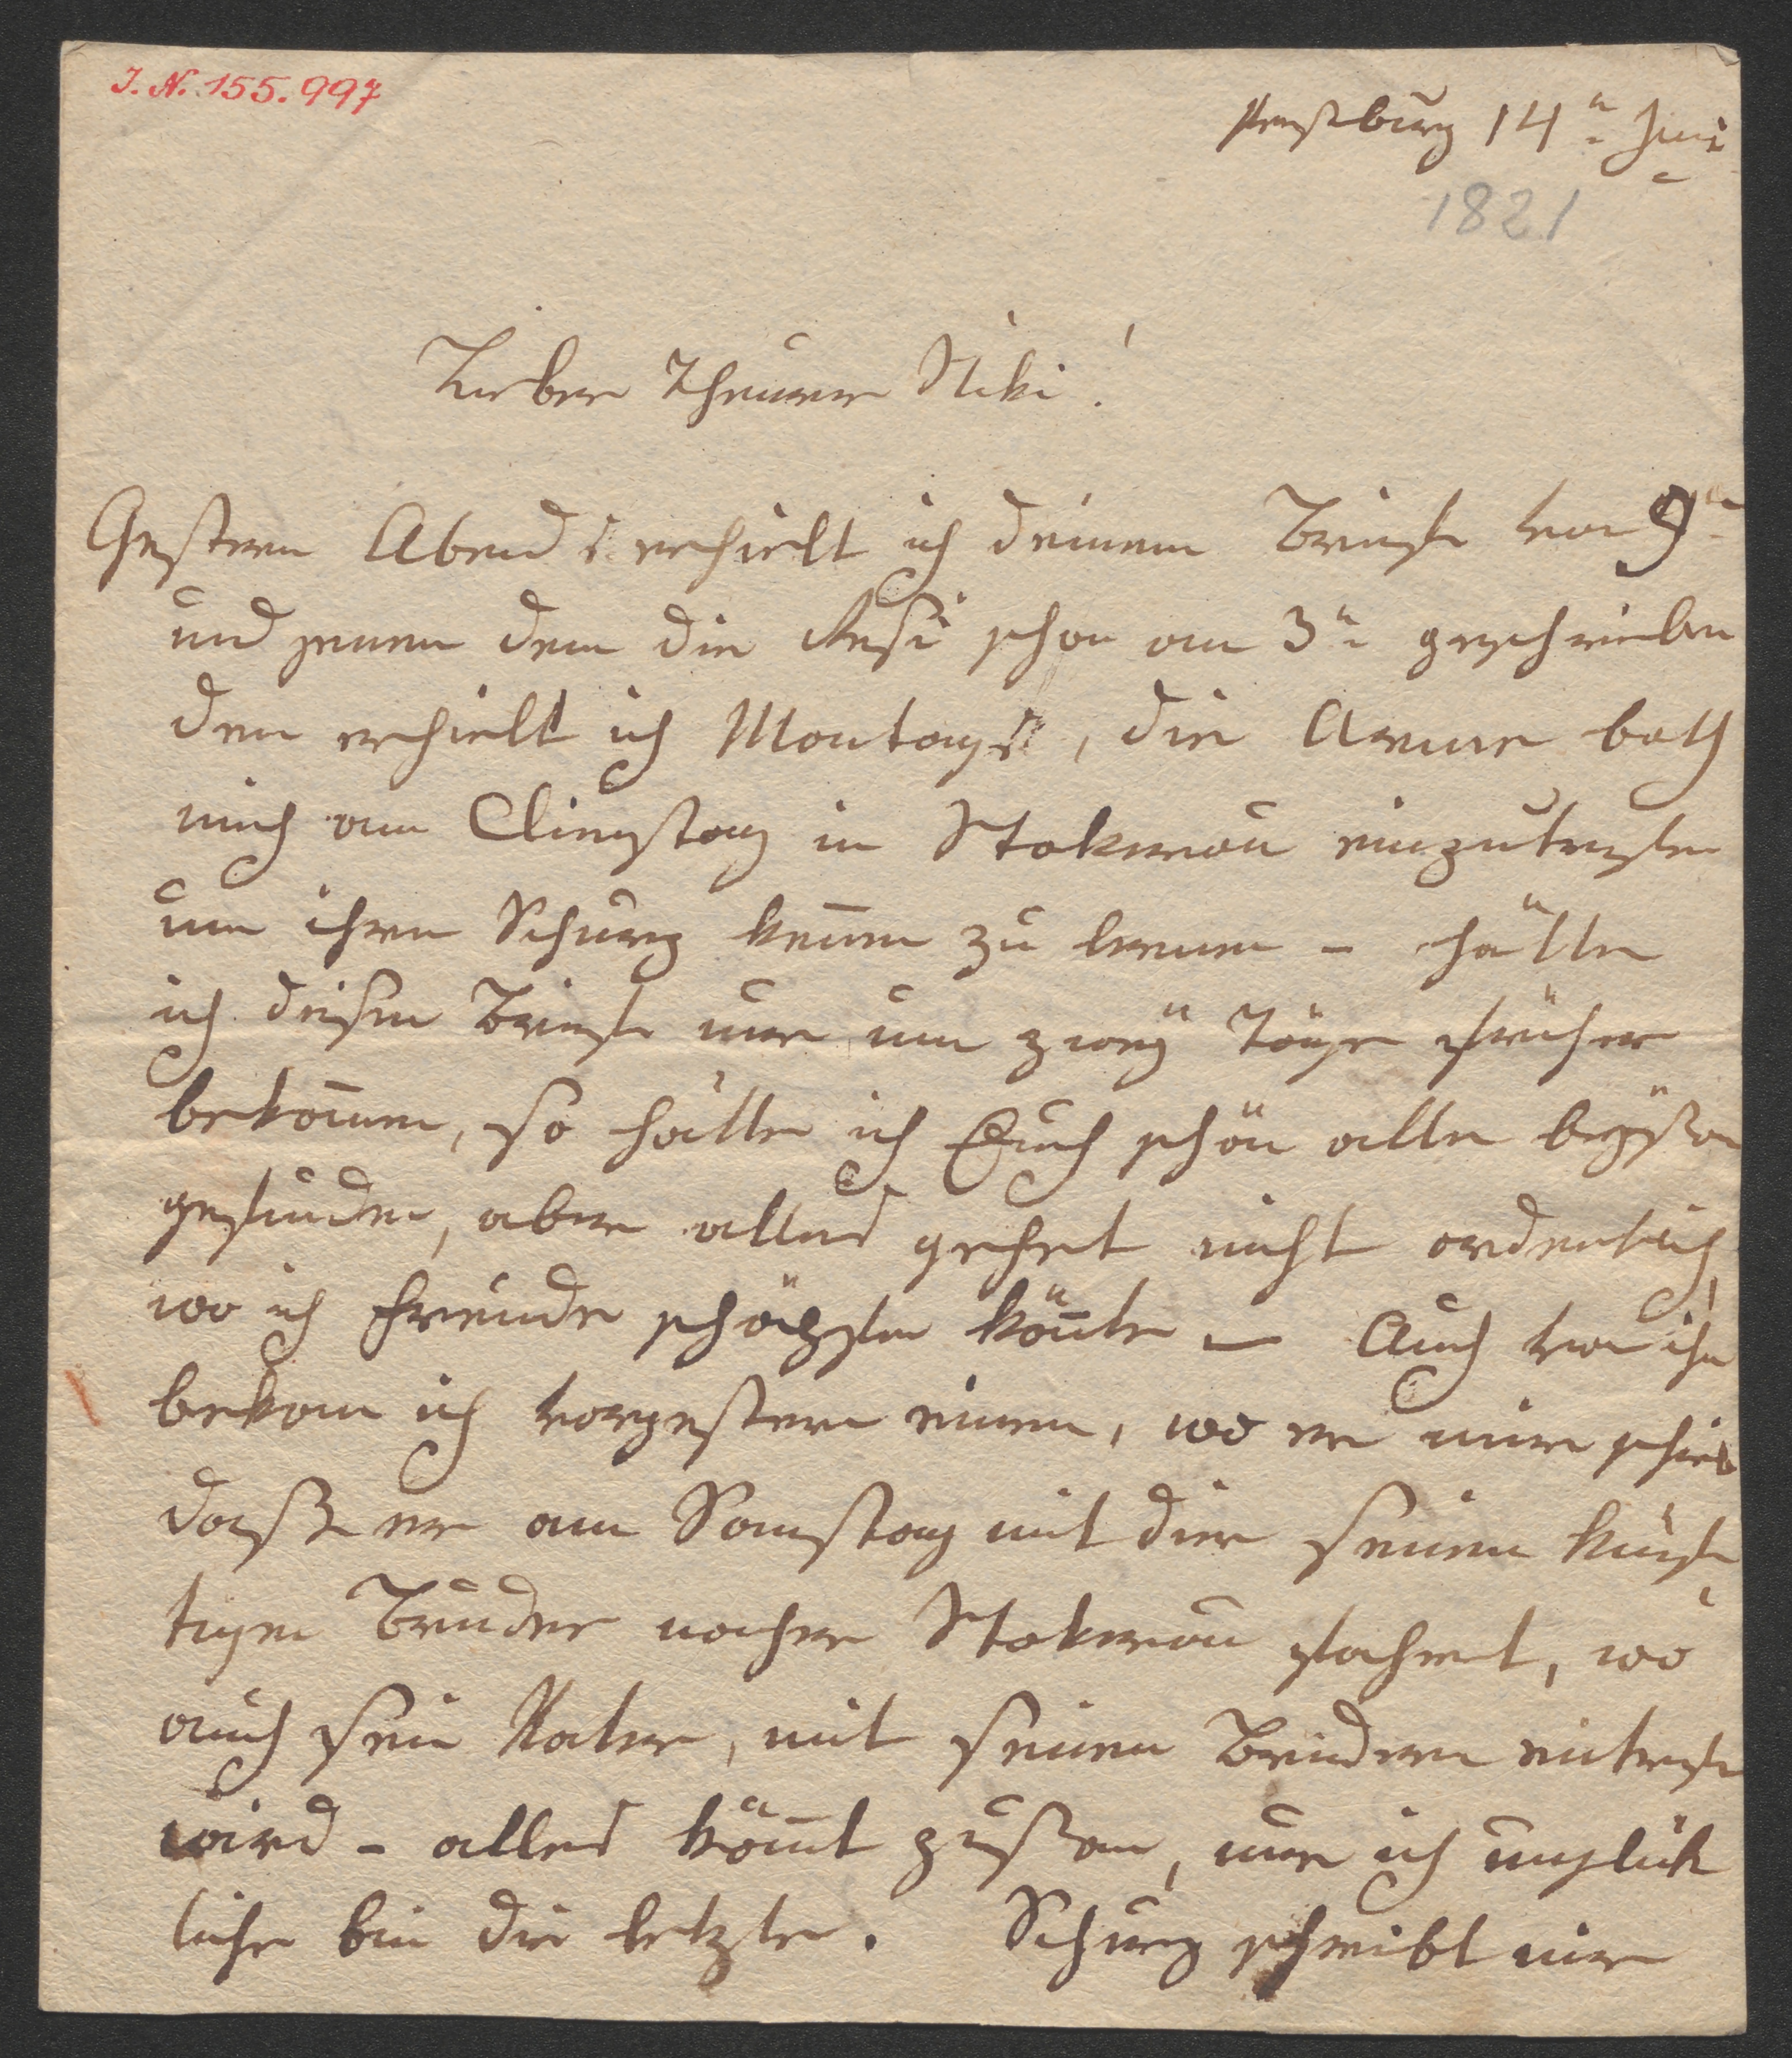 I. N. 155.997
Presburg 14n Juni
1821
Lieber Theurer Niki!
Gestern Abends erhielt ich deinem Brief von 9n
und jenen dem die Resi schon am 3n geschrieben
den erhielt ich Montags, die Arme bath
mich am Dingstag in Stokerau einzutrefen
um ihren Schurz kenen zu lernen – hätte
ich diesen Brief nur um zwey Täge früher
bekomen, so hätte ich Euch schön alle beysam
gefunden, aber alles gehet nicht ordentlich
wo ich Freude schöpfen könte – Auch von ihn
bekam ich vorgestern einen, wo er mir schrieb
daß er am Samstag mit dir seinen künf
tigen Bruder nacher Stokerau fahret, wo
auch sein Vater, mit seinen Brüdern eintref
wird – alles kömt zusam, nur ich unglük
liche bin die letzte. Schurz schreibt mir